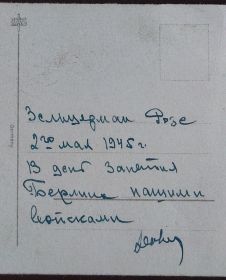 Зельцерман Розе
2го мая 1945 г.
В день занятия
Берлина нашими
войсками
Germany